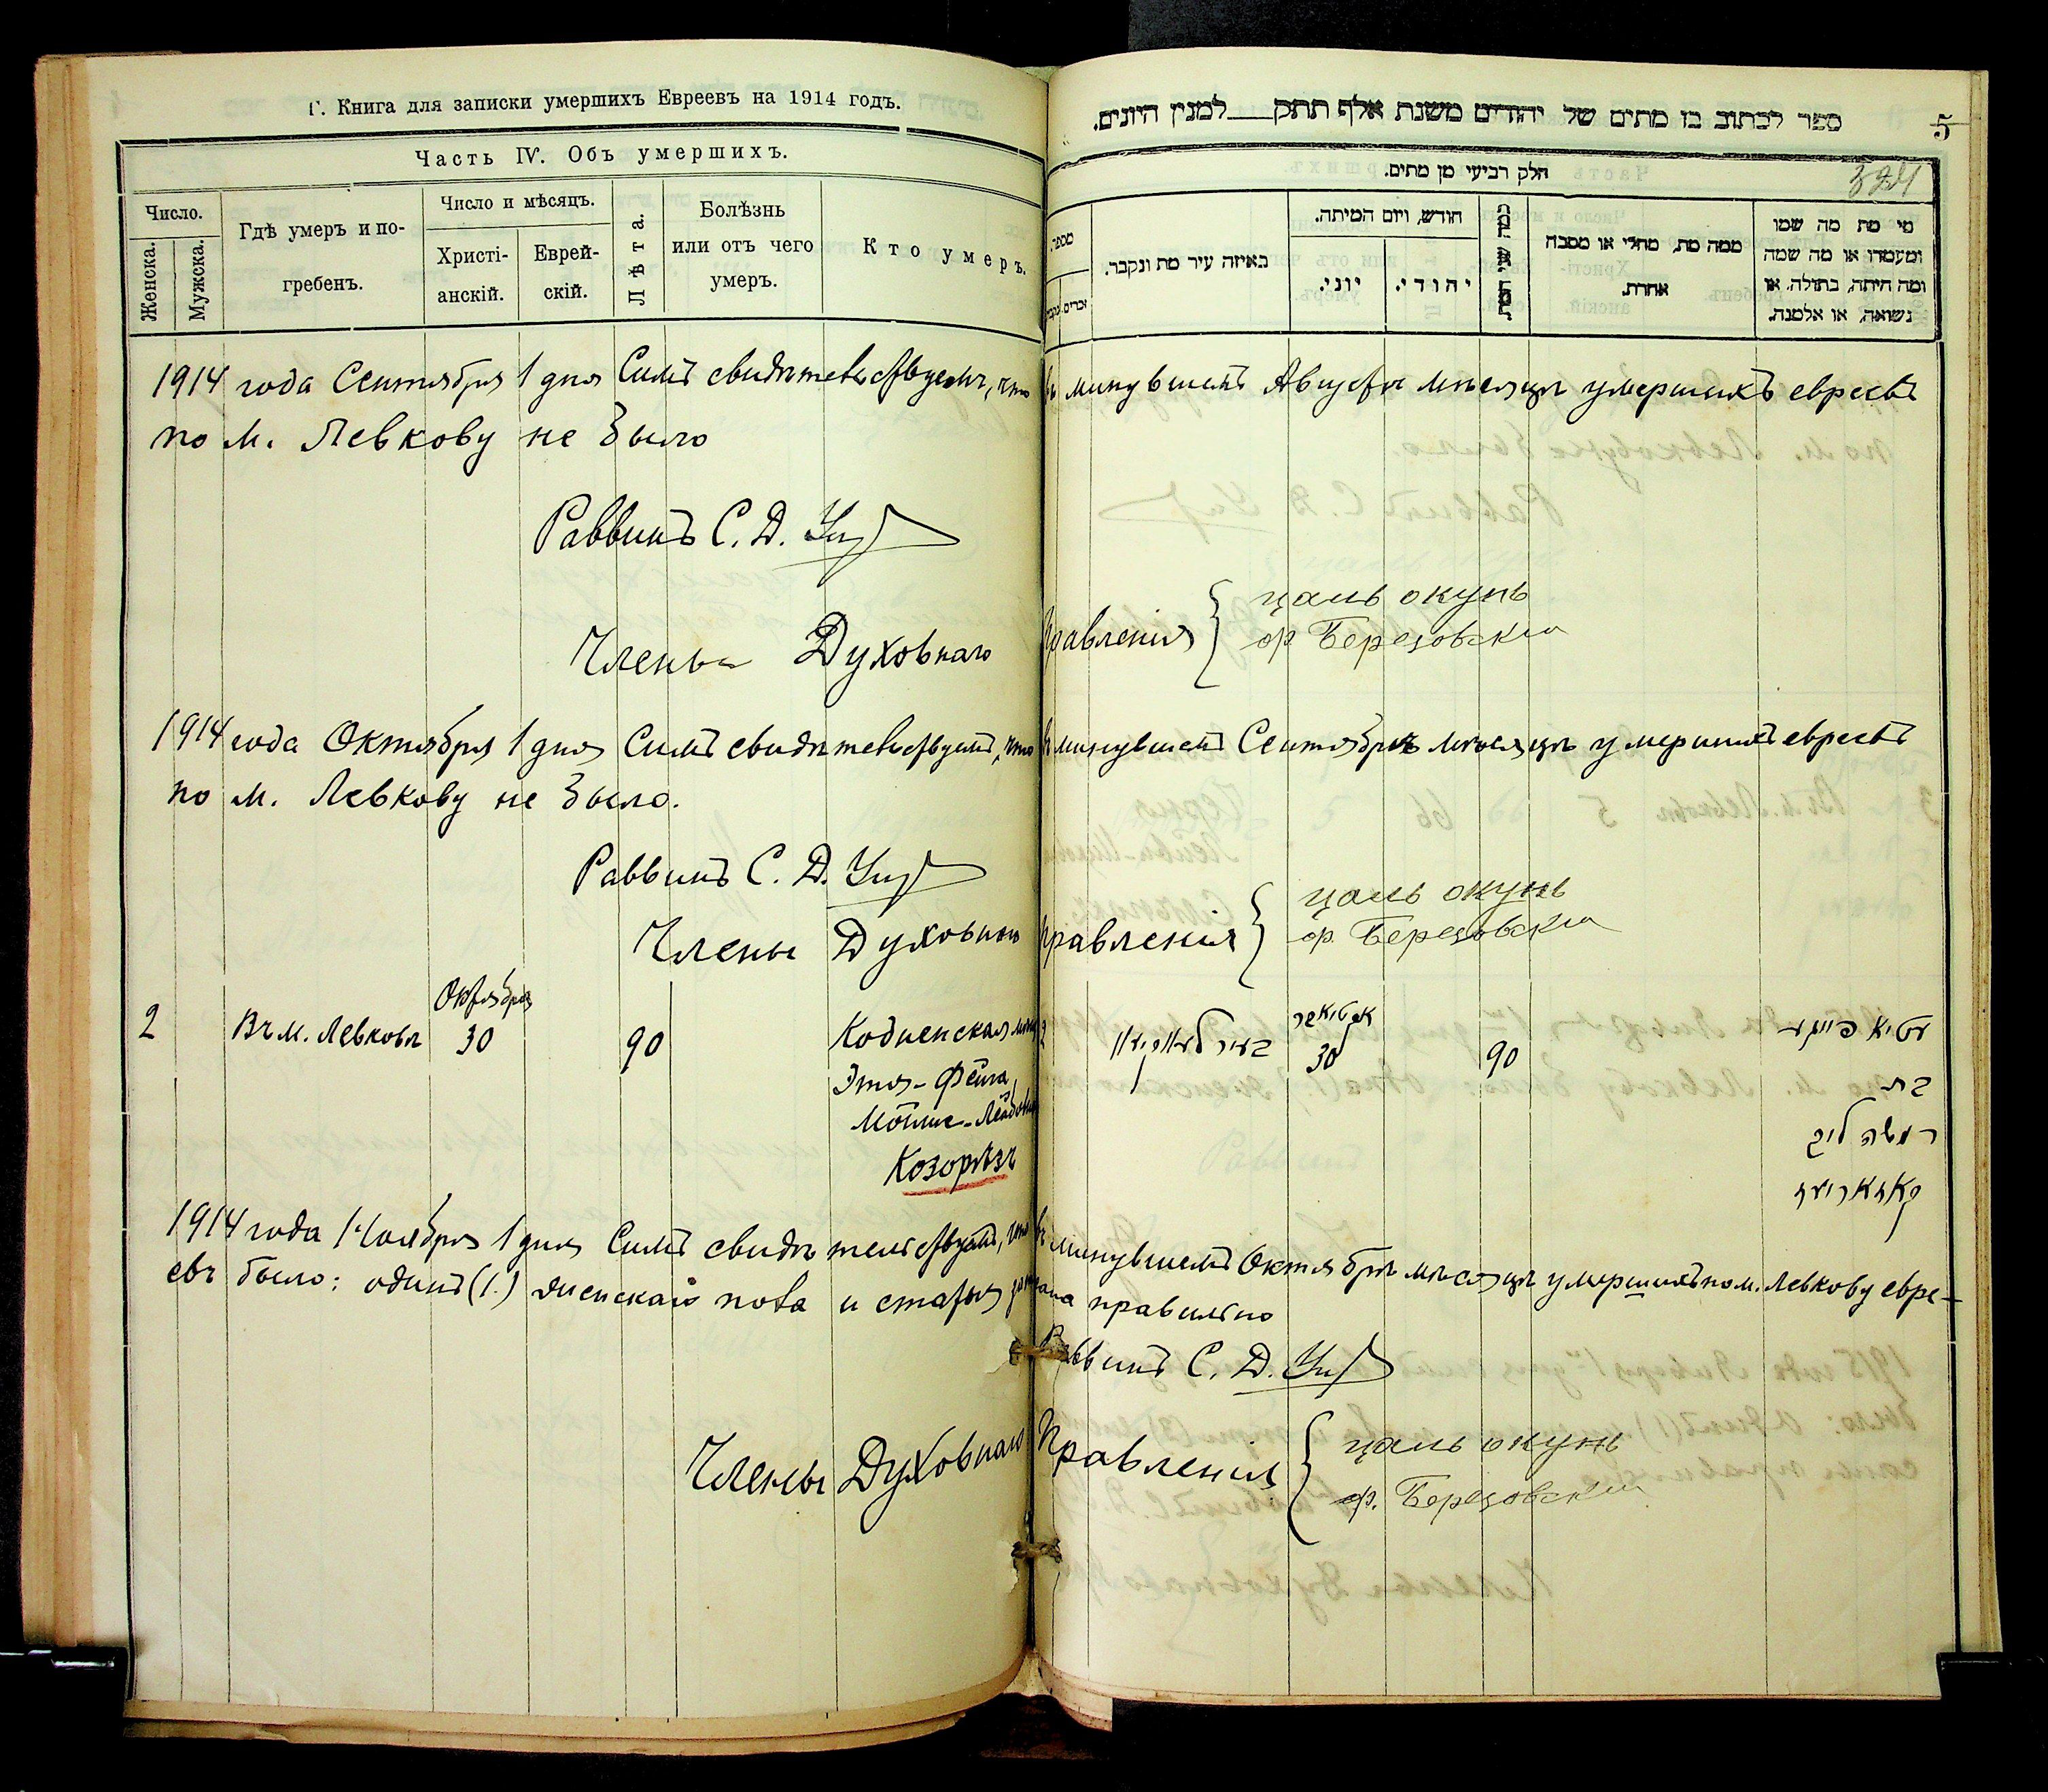 Г. Книга для записки умершихъ Евреевъ на 1914 годъ.
Часть IV. Объ умершихъ.
Число.
Женска.
Мужска.
Гдѣ умеръ и по-
гребенъ.
Число и мѣсяцъ.
Христі-
анскій.
Еврей-
скій.
Лѣта.
Болѣзнь
или отъ чего
умеръ.
Кто умеръ.
ספר לכתוב בו מתים של יהודים משנת אלף תתק למנין היונים.
5
324
חלק רביעי מן מתים.
מספר.
זכרים
באיזה עיר מת ונקבר.
חודש, ויום המיתה.
יוני.
יהודי.
ממה מת, מחלי או מסבה
אחרת.
מי מת מה שמו
ומעמדו או מה שמה
ומה היתה, בתולה, או
נשואה, או אלמנה.
1914 года Сентября 1 дня Симъ свидѣтельствуемъ, что въ минувшемъ Августѣ мѣсяцѣ умершихъ евреевъ
по м. Левкову не было
Раввинъ С. Д.
Члены Духовнаго Правленія { цаль окунь
ор Березовскии
1914 года Октября 1 дня Симъ свидѣтельствуемъ, что въ минувшемъ Сентябрѣ мѣсяцѣ умершихъ евреевъ
по м. Левкову не было.
Раввинъ С. Д.
Члены Духовнаго Правленія { цаль окунь
ор. Березовскии
2 Въ м. Левковѣ Октября 30 90 Кодненская мѣщ
Этя-Фейга
Мойше-Лейбова
Козорѣзъ
2 בעיר לעווקאוו אקטיאבר 30 90 עטיא פייגע
בת
ר משה ליב
קאזארעז
1914 года Ноября 1 дня Симъ свидѣтельствуемъ, что въ минувшемъ Октябрѣ мѣсяцѣ умершихъ по м. Левкову евре-
евъ было: одинъ (1.) женскаго пола и статья записана правильно
Раввинъ С. Д.
Члены Духовнаго Правленія { цаль окунь
ор. Березовскии